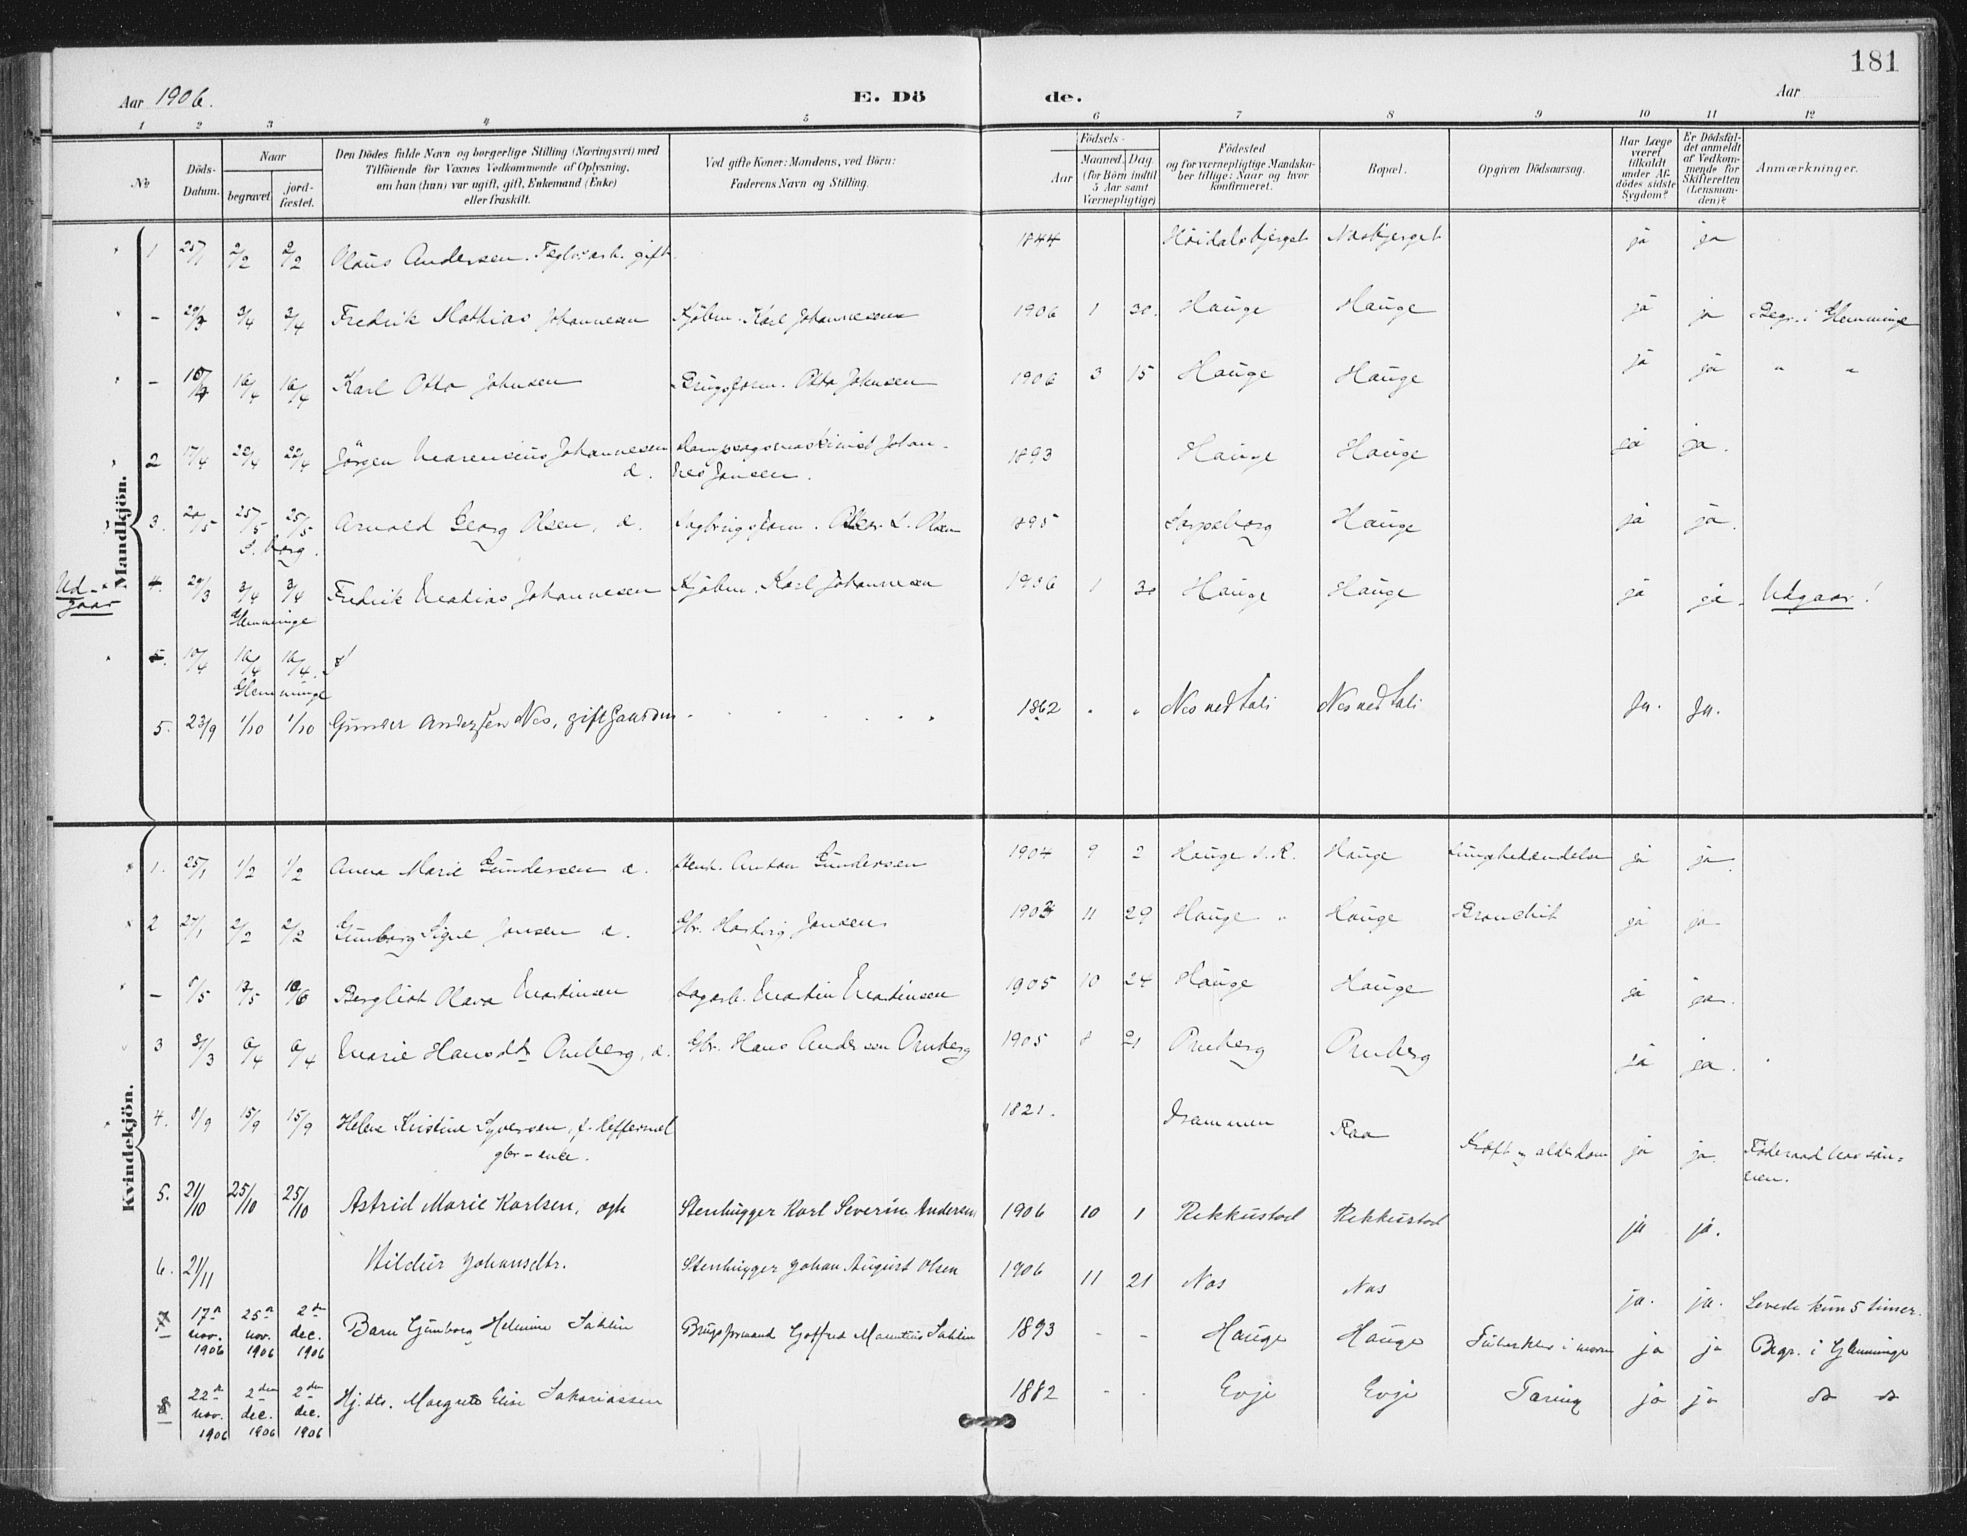 181
Aar 1906.
E. Dö
de.
Aar
1 2 3 4 5 6 7 8 9 10 11 12
No
Döds-
Datum.
Naar
begravet.
jord-
fæstet.
Den Dödes fulde Navn og borgerlige Stilling (Næringsvei) med
Tilföiende for Voxnes Vedkommende af Oplysning,
om han (hun) var ugift, gift, Enkemand (Enke)
eller fraskilt.
Ved gifte Koner: Mandens, ved Börn:
Faderens Navn og Stilling.
Födsels-
Aar
Maaned. Dag
(for Börn indtil
5 Aar samt
Værnepligtige)
Födested
og for værnepligtige Mandska-
ber tillige: Naar og hvor
konfirmeret.
Bopæl.
Opgiven Dödsaarsag.
Har Læge
været
tilkaldt
under Af-
dödes sidste
Sygdom?
Er Dödsfal-
det anmeldt
af Vedkom-
mende for
Skifteretten
(Lensman-
den)?
Anmærkninger.
Mandkjön.
1 25/1 2/2 2/2 Olaus Andersen. gift. 1844 ja ja
– 3/4 3/4 Fredrik Mathias Johannesen Kjöbm. Karl Johannesen 1906 1 30. Hauge Hauge ja ja Begr. i Glemminge
– 16/4 16/4 Karl Otto Johnsen Brugsform. Otto Johnsen 1906 3 15 Hauge Hauge ja ja " "
2 17/4 22/4 22/4 Jörgen Marensius Johannesen Johan-
1893 Hauge Hauge ja ja.
æ. nes Jansen.
3. 20/5 25/5 25/5 Arnold Georg Olsen, æ. Olsen 1895 Sarpsborg Hauge ja ja.
S. borg.
Ud-
gaar
4. 29/3 3/4 3/4 Fredrik Matias Johannesen Kjöbm. Karl Johannesen 1906 1 30 Hauge Hauge ja ja. Udgaar!
Glemminge
5. 10/4 16/4 16/4
Glemminge
5. 23/9 1/10 1/10 Gunder Andersen Nes, gift 1862 " " Nes nedtali Nes nedtali Ja. Ja.
Kvindekjön.
1. 25/1 1/2 1/2 Anna Marie Gundersen æ. Anton Gundersen 1904 9 2 Hauge Hauge Lungebetændelse ja ja
2 27/1 2/2 2/2 Gunborg Signe Jansen æ. Gbr. Jansen 1903 11 29 Hauge " Hauge Bronchit ja ja
– 8/5 Bergliot Olava Martinsen Sagarb. Martin Martinsen 1905 10 24 Hauge Hauge ja ja.
3 31/3 6/4 6/4 Marie Hansdt. Omberg, æ. Gbr. Hans Andersen Omberg 1905 8 21 Omberg Omberg ja ja.
4. 8/9 15/9 15/9 Helene Kristine Syversen, 1821. Drammen Raa alderdom ja ja. Föderaad hos søn-
nen.
gbr-enke.
5. 21/10 25/10 25/10 Astrid Marie Karlsen, ægte Stenhugger Karl Severin Andersen 1906 10 1 Rekkustad Rekkustad ja ja.
6. 21/11 Hildur Johansdtr. Stenhugger Johan August Olsen 1906 11 21 Nes Nes ja. ja. Levede kun 5 timer.
7 17de nov. 1906 25de nov. 1906 2den dec. 1906 Barn Gunborg Helmine Sahlin Brugsformand Gotfred Mauritius Sahlin 1893 - - Hauge Hauge ja ja Begr. i Glemminge
8 22de nov. 1906 2den dec. 1906 2den dec. 1906 Hj. dtr. Margrete Elise Sakariassen 1882 - - Evje Evje Tæring ja ja do do